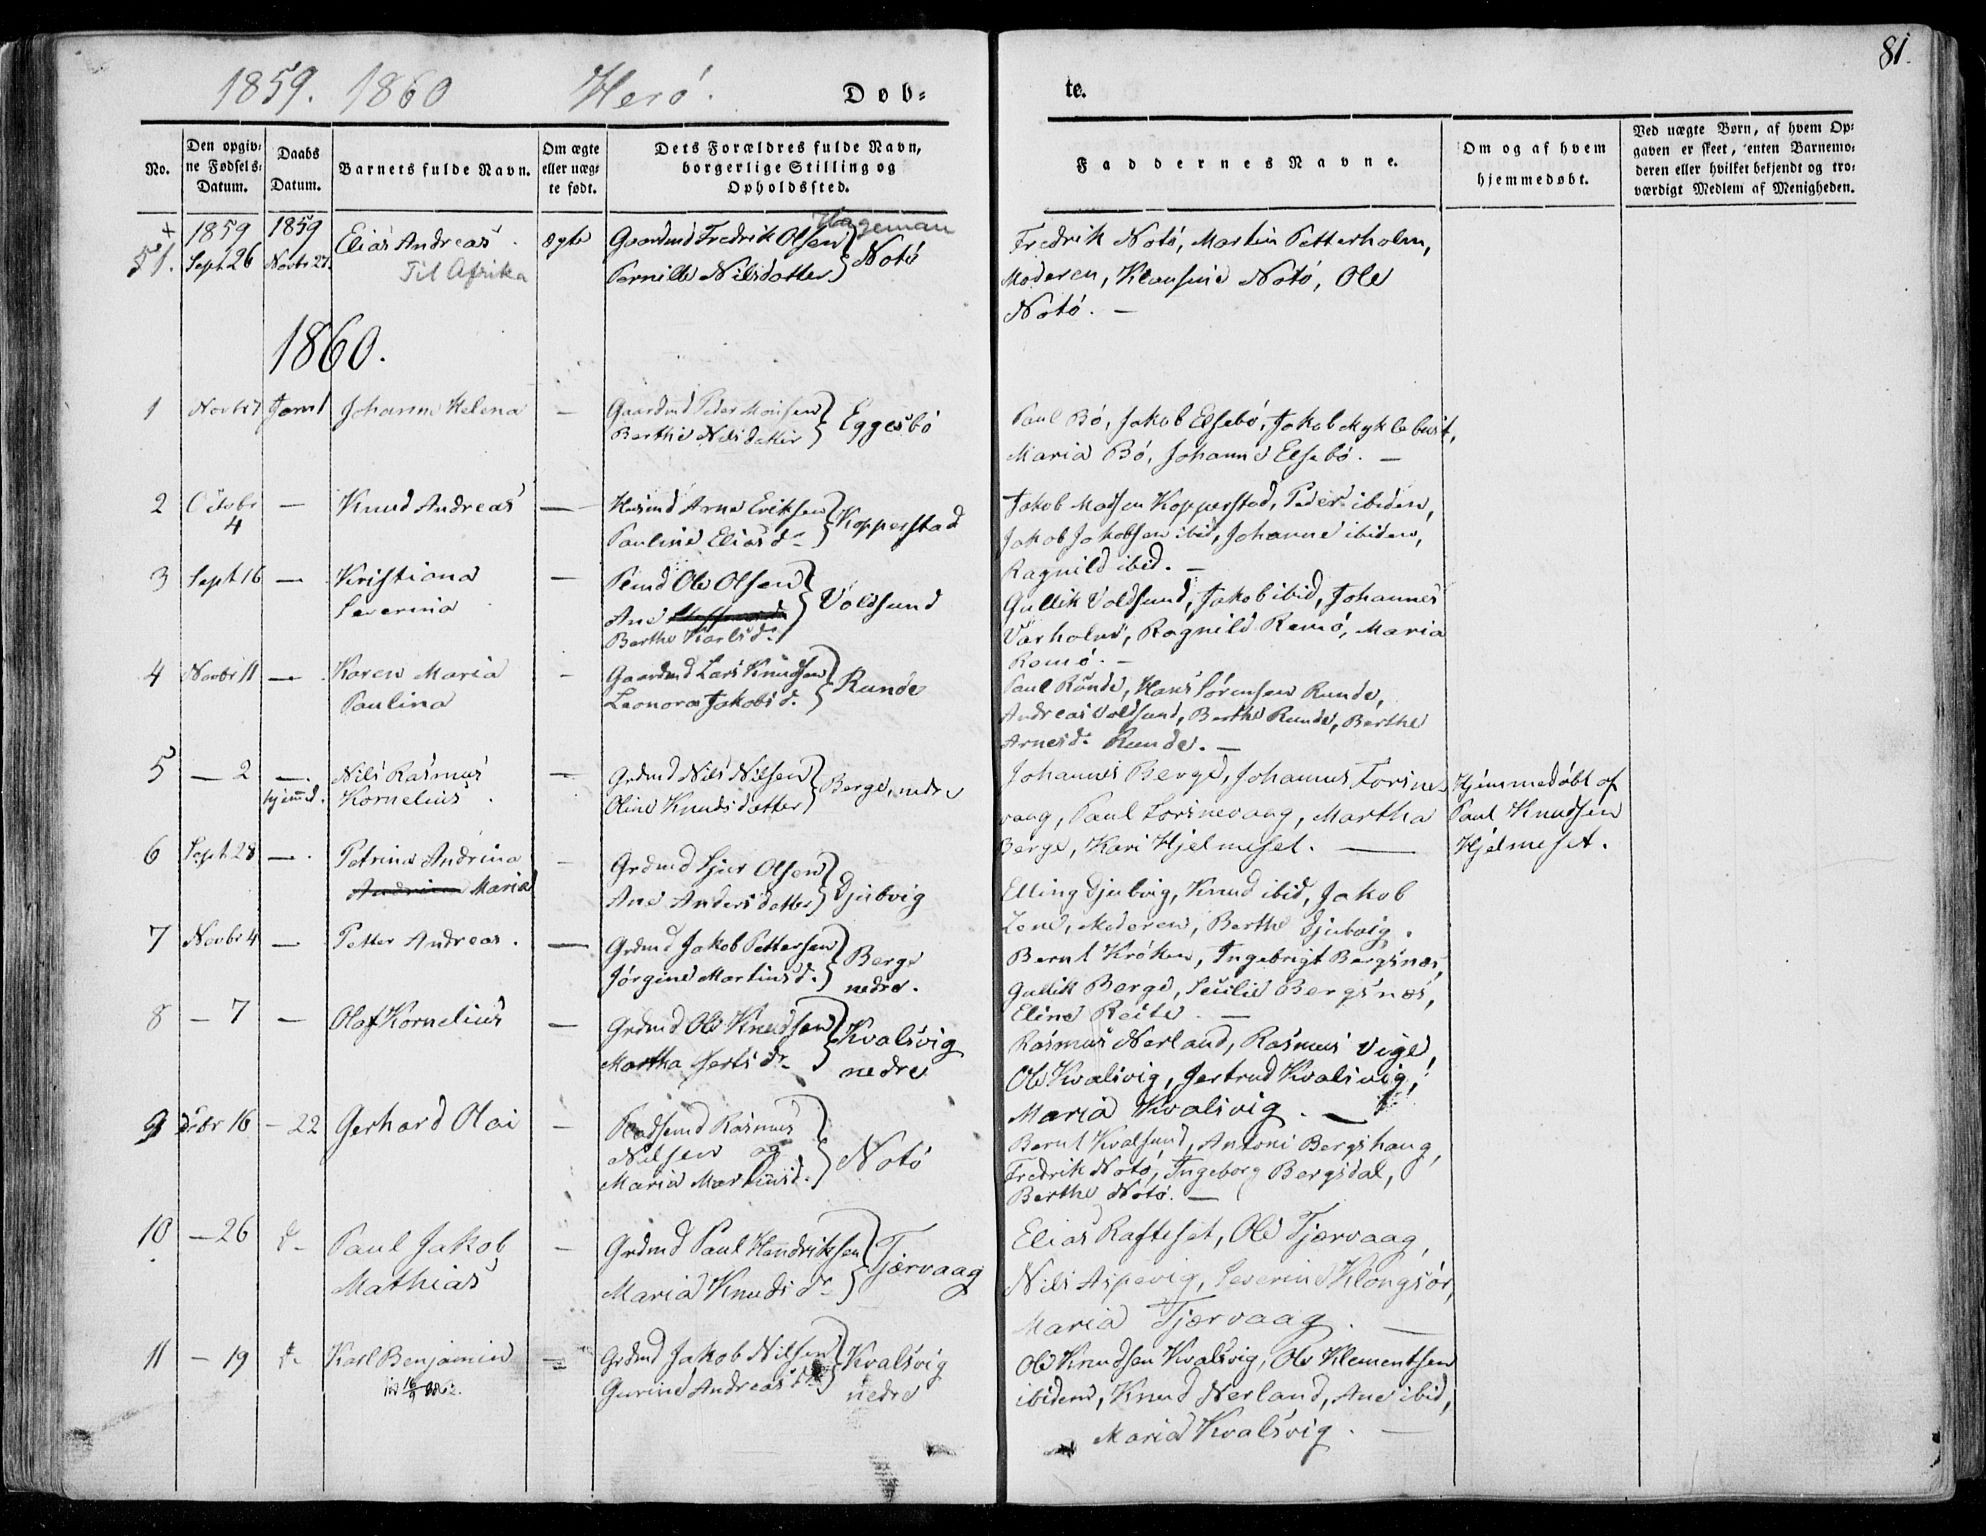 81.
1859. 1860 Herö. Døb-
te.
No.
Den opgiv-
ne Fødsels-
Datum.
Daabs
Datum.
Barnets fulde Navn.
Om ægte
eller uæg-
te født.
Dets Forældres fulde Navn,
borgerlige Stilling og
Opholdssted.
Faddernes Navne.
Om og af hvem
hjemmedøbt.
Ved uægte Børn, af hvem Op-
gaven er skeet, enten Barnemo-
deren eller hvilket bekjendt og tro-
værdigt Medlem af Menigheden.
+
51.
1859
Sept 26
1859
Novbr 27
Elias Andreas
Til Afrika
ægte
Hageman
Gaardmd Fredrik Olsen
Pernille Nilsdotter } Notö
Fredrik Notö, Martin Petterholm,
Moderen, Klausine Notö, Ole
Notö. —
1860.
1
Novbr 7
Janr 1
Johanne Helena
—
Gaardmd Peder Monsen
Berthe Nilsdatter } Eggesbö
Paul Bö, Jakob Elsebö, Jakob Myklebust,
Maria Bö, Johanne Elsebö. —
2
Octobr
4
—
Knud Andreas
—
Husmd Arne Eriksen
Pauline Eliasd. } Kopperstad
Jakob Madsen Kopperstad, Peder ibidem,
Jakob Jakobsen ibid, Johanne ibidem,
Ragnild ibid. —
3
Sept 16
—
Kristiana
Severina
—
Ole Olsen
Ane
Berthe Karlsd. } Voldsund
Gullik Voldsund, Jakob ibid, Johannes
Varholm, Ragnild Remö, Maria
Remö. —
4
Novbr 11
—
Karen Maria
Paulina
—
Gaardmd Lars Knudsen
Leonora Jakobsd. } Runde
Paul Runde, Hans Sörensen Runde,
Andreas Voldsund, Berthe Runde, Berthe
Arnesd. Runde. —
5
— 2
—
hjemmd.
Nils Rasmus
Kornelius
—
Grdmd Nils Nilsen
Oline Knudsdatter } Berge, nedre
Johannes Berge, Johannes Torsne-
vaag, Paul Torsnevaag, Martha
Berge, Kari Hjelmeset. —
Hjemmedöbt af
Paul Knudsen
Hjelmeset.
6
Sept 28
—
Petrina Andrina
Andrina Maria
—
Grdmd Sjur Olsen
Ane Andersdatter } Djubvig
Elling Djubvig, Knud ibid, Jakob
Lene, Moderen, Berthe Djubvig.
7
Novbr 4
—
Petter Andreas.
—
Grdmd Jakob Pettersen
Jörgine Martinsd. } Berge
nedre.
Bernt Kröken, Ingebrigt Bergsnæs,
Gullik Berge, Sicilie Bergsnæs,
Eline Reite. —
8
— 7
—
Olaf Kornelius
—
Grdmd Ole Knudsen
Martha Jertsd. } Kvalsvig
nedre
Rasmus Nerland, Rasmus Vige,
Ole Kvalsvig, Jertrud Kvalsvig,
Maria Kvalsvig. —
9
Dcbr 16
— 22
Gerhard Olai
—
Pladsemd Rasmus
Nilsen og
Maria Martinsd. } Notö
Bernt Kvalsund, Antoni Bergshaug,
Fredrik Notö, Ingeborg Bergsdal,
Berthe Notö. —
10
— 26
d-
Paul Jakob
Mathias
—
Grdmd Paul Hendriksen
Maria Knudsd. } Tjærvaag
Elias Rafteset, Ole Tjærvaag,
Nils Aspevig, Severine Klongsör,
Maria Tjærvaag. —
11
— 19
d-
Karl Benjamin
—
Grdmd Jakob Nilsen
Gurine Andreasd. } Kvalsvig
nedre
Ole Knudsen Kvalsvig, Ole Klementsen
ibidem, Knud Nerland, Ane ibid,
Maria Kvalsvig. —